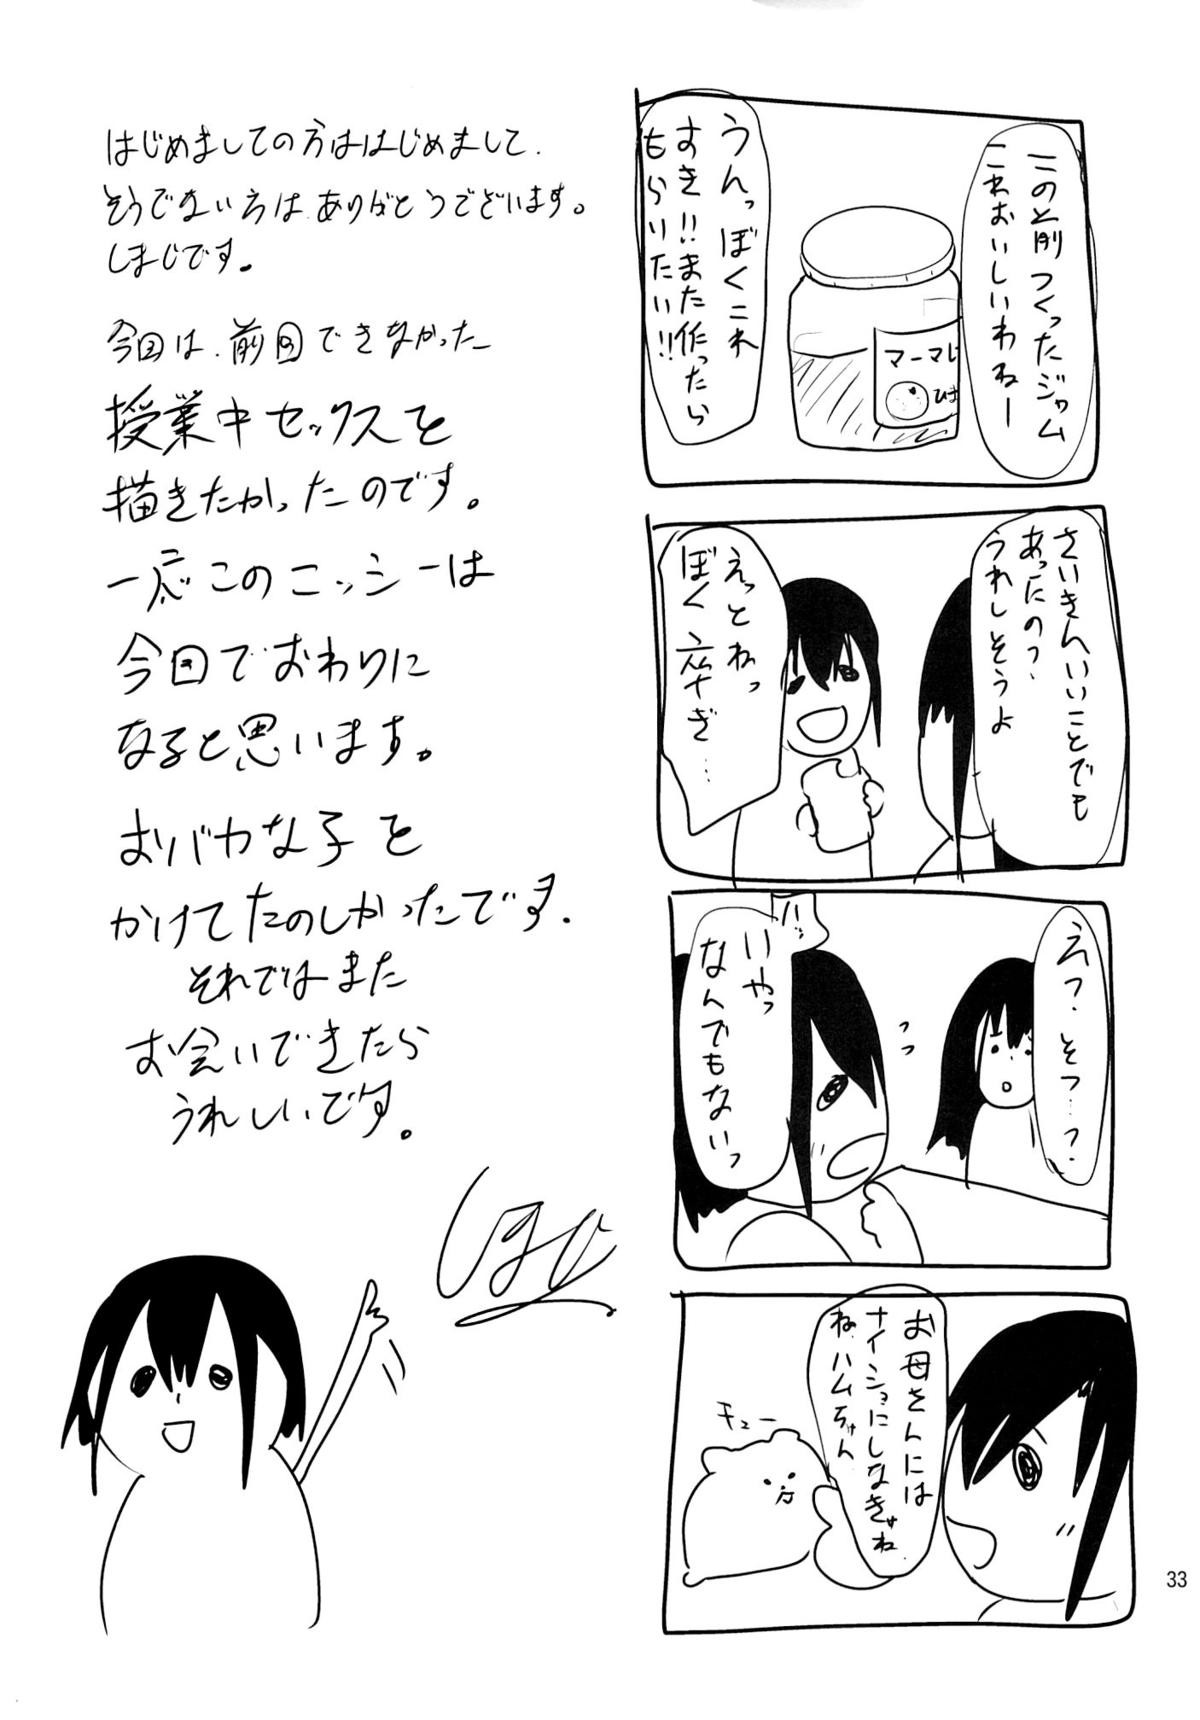 この前つくったジャム
これおいしいわねー
うんっぼくこれ
すき!!また作ったら
もらいたい!!
マーマレ
さいきんいいことでも
あったの?
うれしそうよ
えっとねっ
ぼく卒ぎ…
え?そつ…?
いやっ
なんでもないっ
ハッ
お母さんには
ナイショにしなきゃね
ね、ハムちゃん
チュー
はじめましての方ははじめまして、
そうでない方は、ありがとうございます。
しまじです。
今回は、前回できなかった
授業中セックスを
描きたかったのです。
一応このニッシーは
今回でおわりに
なると思います。
おバカな子を
かけてたのしかったです。
それではまた
お会いできたら
うれしいです。
しまじ
33